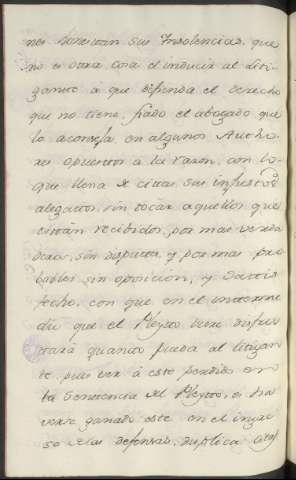 nes exercitan sus Insolencias, que
no es otra cosa el inducir al liti-
gante à que defienda el derecho
que no tiene, fiado el abogado que
lo aconseja, en algunos Autho-
res opuestos à la razon, con lo
que llena de citas sus injustos
alegatos, sin tocàr aquellos que
estàn recibidos, por mas verda
dera, sin disputa, y por mas pro
bables sin oposicion, y satis
fecho, con que en el interme
dio que el Pleyto dure disfru
tarà quanto pueda al litigan
te, pues ver à este perdido en
la Sentencia del Pleyto, es ha
verse ganado este en el ingre
so de las defensas, duplica